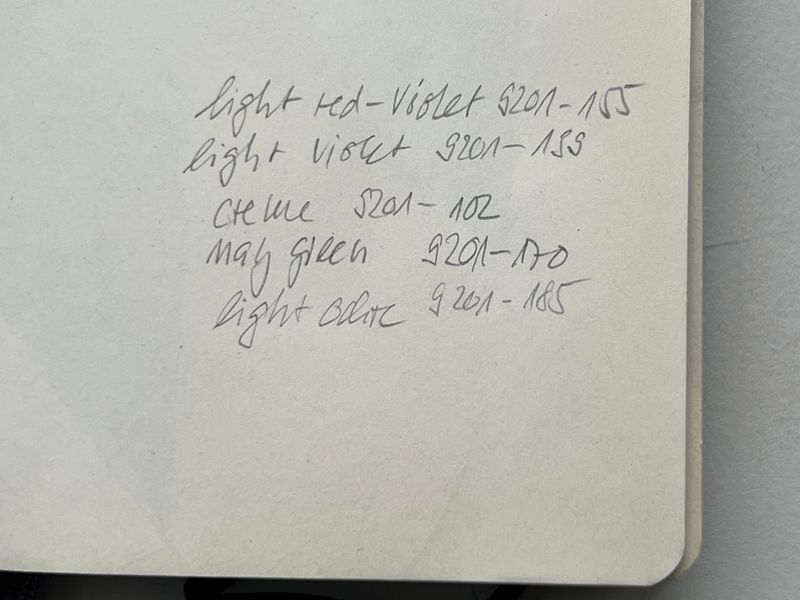 light red-violet 9201-135
light violet 9201-139
creme 9201-102
may green 9201-170
light ochre 9201-183